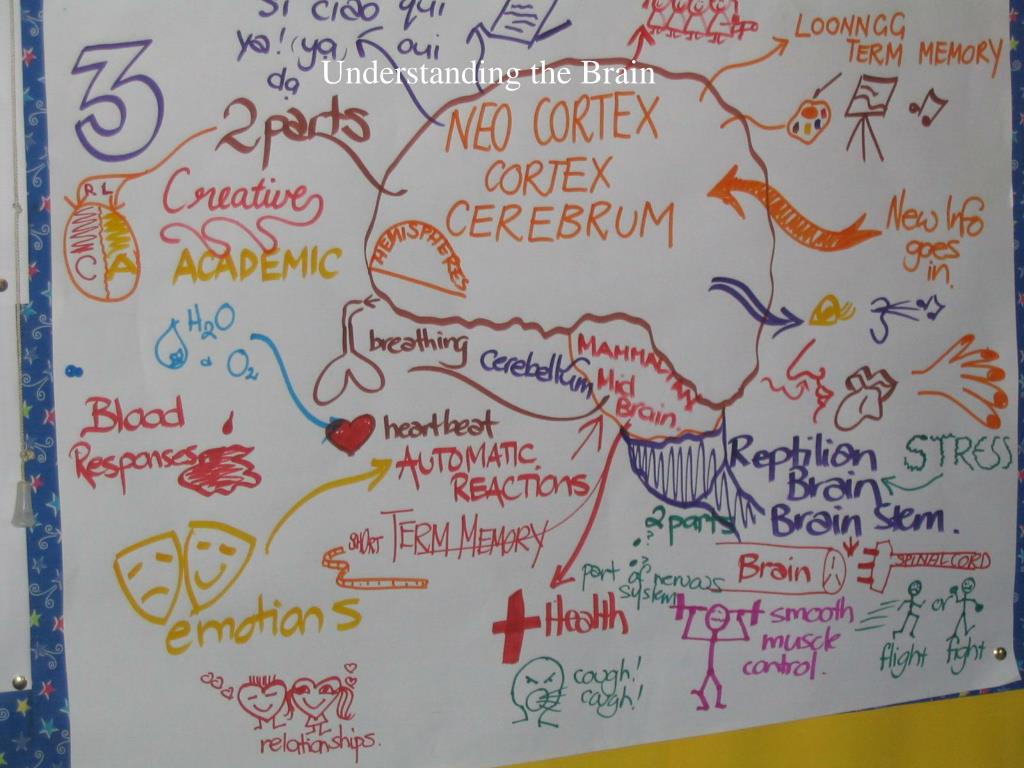 Si ciao qui
ya! ya, oui
da
Understanding the Brain
3
2 parts
R L
C A
Creative
ACADEMIC
NEO CORTEX
CORTEX
CEREBRUM
HEMISPHERES
LOONNGG
TERM MEMORY
New Info
goes
in.
H2O
O2
breathing
Cerebellum
MAMMALIAN
Mid
Brain.
Blood
Responses
heartbeat
AUTOMATIC
REACTIONS
SHORT TERM MEMORY
Reptilian
Brain
Brain Stem.
STRESS
2 parts
??
part of nervous
system
Brain
SPINAL CORD
emotions
Health
cough!
cough!
smooth
muscle
control.
flight or fight
relationships.